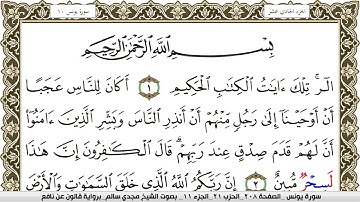 الجزء الحادي عشر
سورة يونس ١٠
بِسْمِ اللَّهِ الرَّحْمَٰنِ الرَّحِيمِ
الٓر ۚ تِلْكَ ءَايَٰتُ الْكِتَٰبِ الْحَكِيمِ ١ أَكَانَ لِلنَّاسِ عَجَبًا
أَنْ أَوْحَيْنَا إِلَىٰ رَجُلٍ مِّنْهُمْ أَنْ أَنذِرِ النَّاسَ وَبَشِّرِ الَّذِينَ ءَامَنُوا
أَنَّ لَهُمْ قَدَمَ صِدْقٍ عِندَ رَبِّهِمْ ۗ قَالَ الْكَٰفِرُونَ إِنَّ هَٰذَا
لَسِحْرٌ مُّبِينٌ ٢ إِنَّ رَبَّكُمُ اللَّهُ الَّذِي خَلَقَ السَّمَٰوَٰتِ وَالْأَرْضَ
سورة يونس الصفحة ٢٠٨ الجزء ٢١ الجزء ١١ بصوت الشيخ مجدي سالم برواية قالون عن نافع